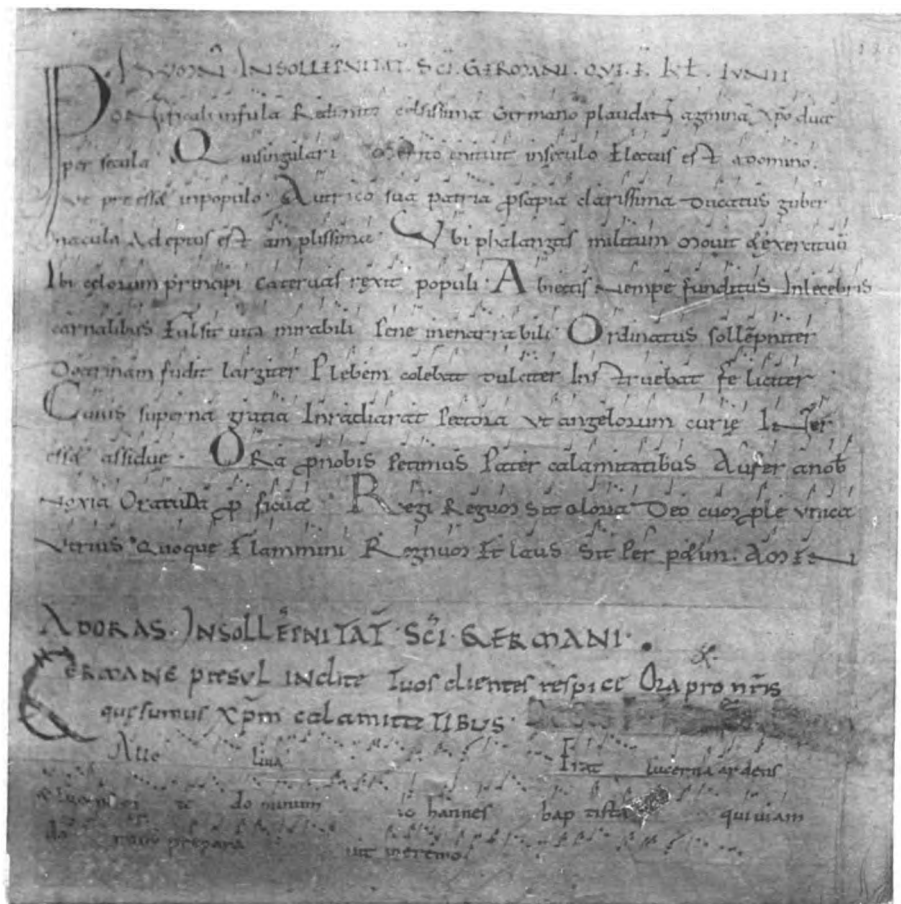 YMN̄ INSOLLEPNITAT̄ SCĪ GERMANI QVI Ē KL̄ IVNII
Pontificali infula Redimito celsissima Germano plaudant agmina xp̄o duce
per secula Quinsingulari merito enituit inseculo Electus est adomino.
ut preesset inpopulo. Autrico sua patria ꝓsapia clarissima Ducatus guber
nacula Adeptus est amplissima. Vbi phalangas militum mouit & exercituū
Ibi celorum principi Cateruas rexit populi. Abiectis Nempe funditus Inlecebris
carnalibus Fulsit uita mirabili Pene inenarrabili Ordinatus sollēpniter
Doctrinam fudit largiter Plebem colebat dulciter Instruebat feliciter
Cuius superna gratia Inradiarat Pectora Vt angelorum curię Inter
esset assidue. ORa ꝓnobis Petimus Pater calamitatibus Aufer anob̄
Noxia
Regi Regum Sit gloria Deo
Vtrius Quoque Flammini Regnum Et laus Sit Per AMEN
ADORAS INSOLLEPNITAT̄ SCĪ GERMANI.
GERMANE presul INclite Tuos clientes respice Ora pro nr̄is
quęsumus Xp̄m calamitaTIBUS.
Alle luia Erat lucerna ardens
do minum io hannes bap tista qui uiam
do prepara uit in eremo